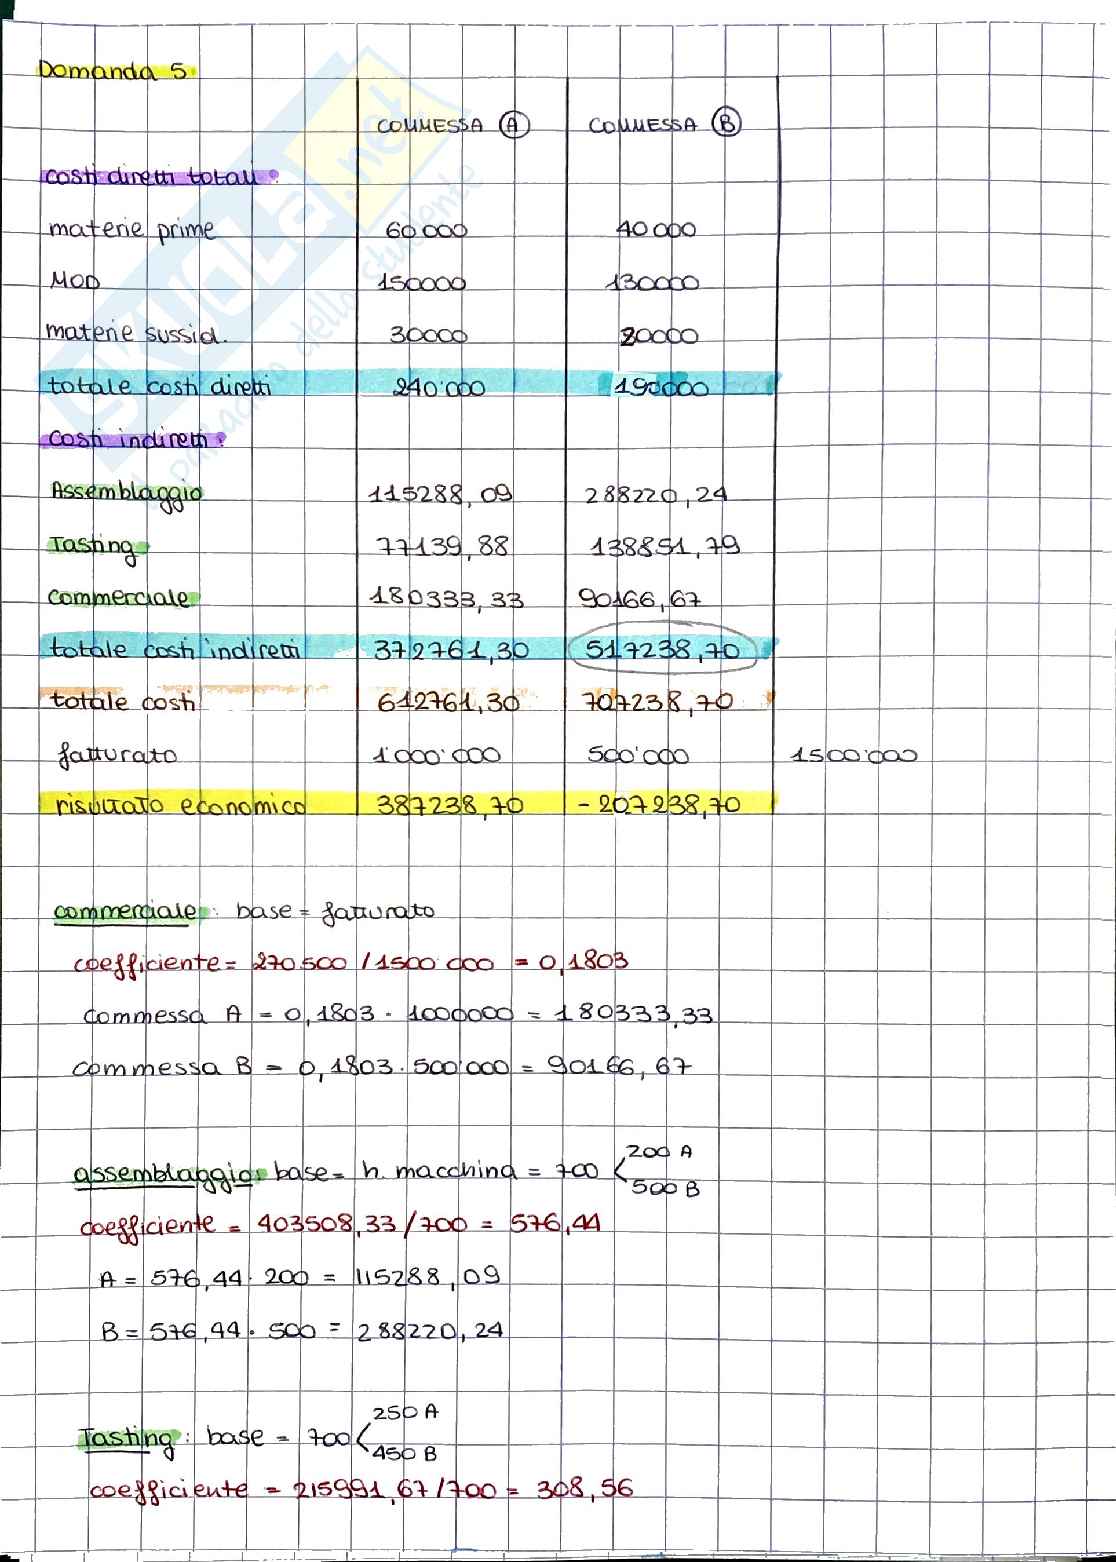 Domanda 5
COMMESSA A COMMESSA B
costi diretti totali:
materie prime 60000 40000
MOD 150000 130000
materie sussid. 30000 20000
totale costi diretti 240'000 190000
costi indiretti:
Assemblaggio 115288,09 288220,24
Tasting 77139,88 138851,79
commerciale 180333,33 90166,67
totale costi indiretti 372761,30 517238,70
totale costi 612761,30 707238,70
fatturato 1'000'000 500'000 1500'000
risultato economico 387238,70 - 207238,70
commerciale: base = fatturato
coefficiente = 270500 / 1500'000 = 0,1803
commessa A = 0,1803 · 1000000 = 180333,33
commessa B = 0,1803 · 500'000 = 90166,67
assemblaggio: base = h. macchina = 700 < 200 A
500 B
coefficiente = 403508,33/700 = 576,44
A = 576,44 · 200 = 115288,09
B = 576,44 · 500 = 288220,24
Tasting: base = 700 < 250 A
450 B
coefficiente = 215991,67/700 = 308,56
SKUOLA.net
il paradiso dello studente